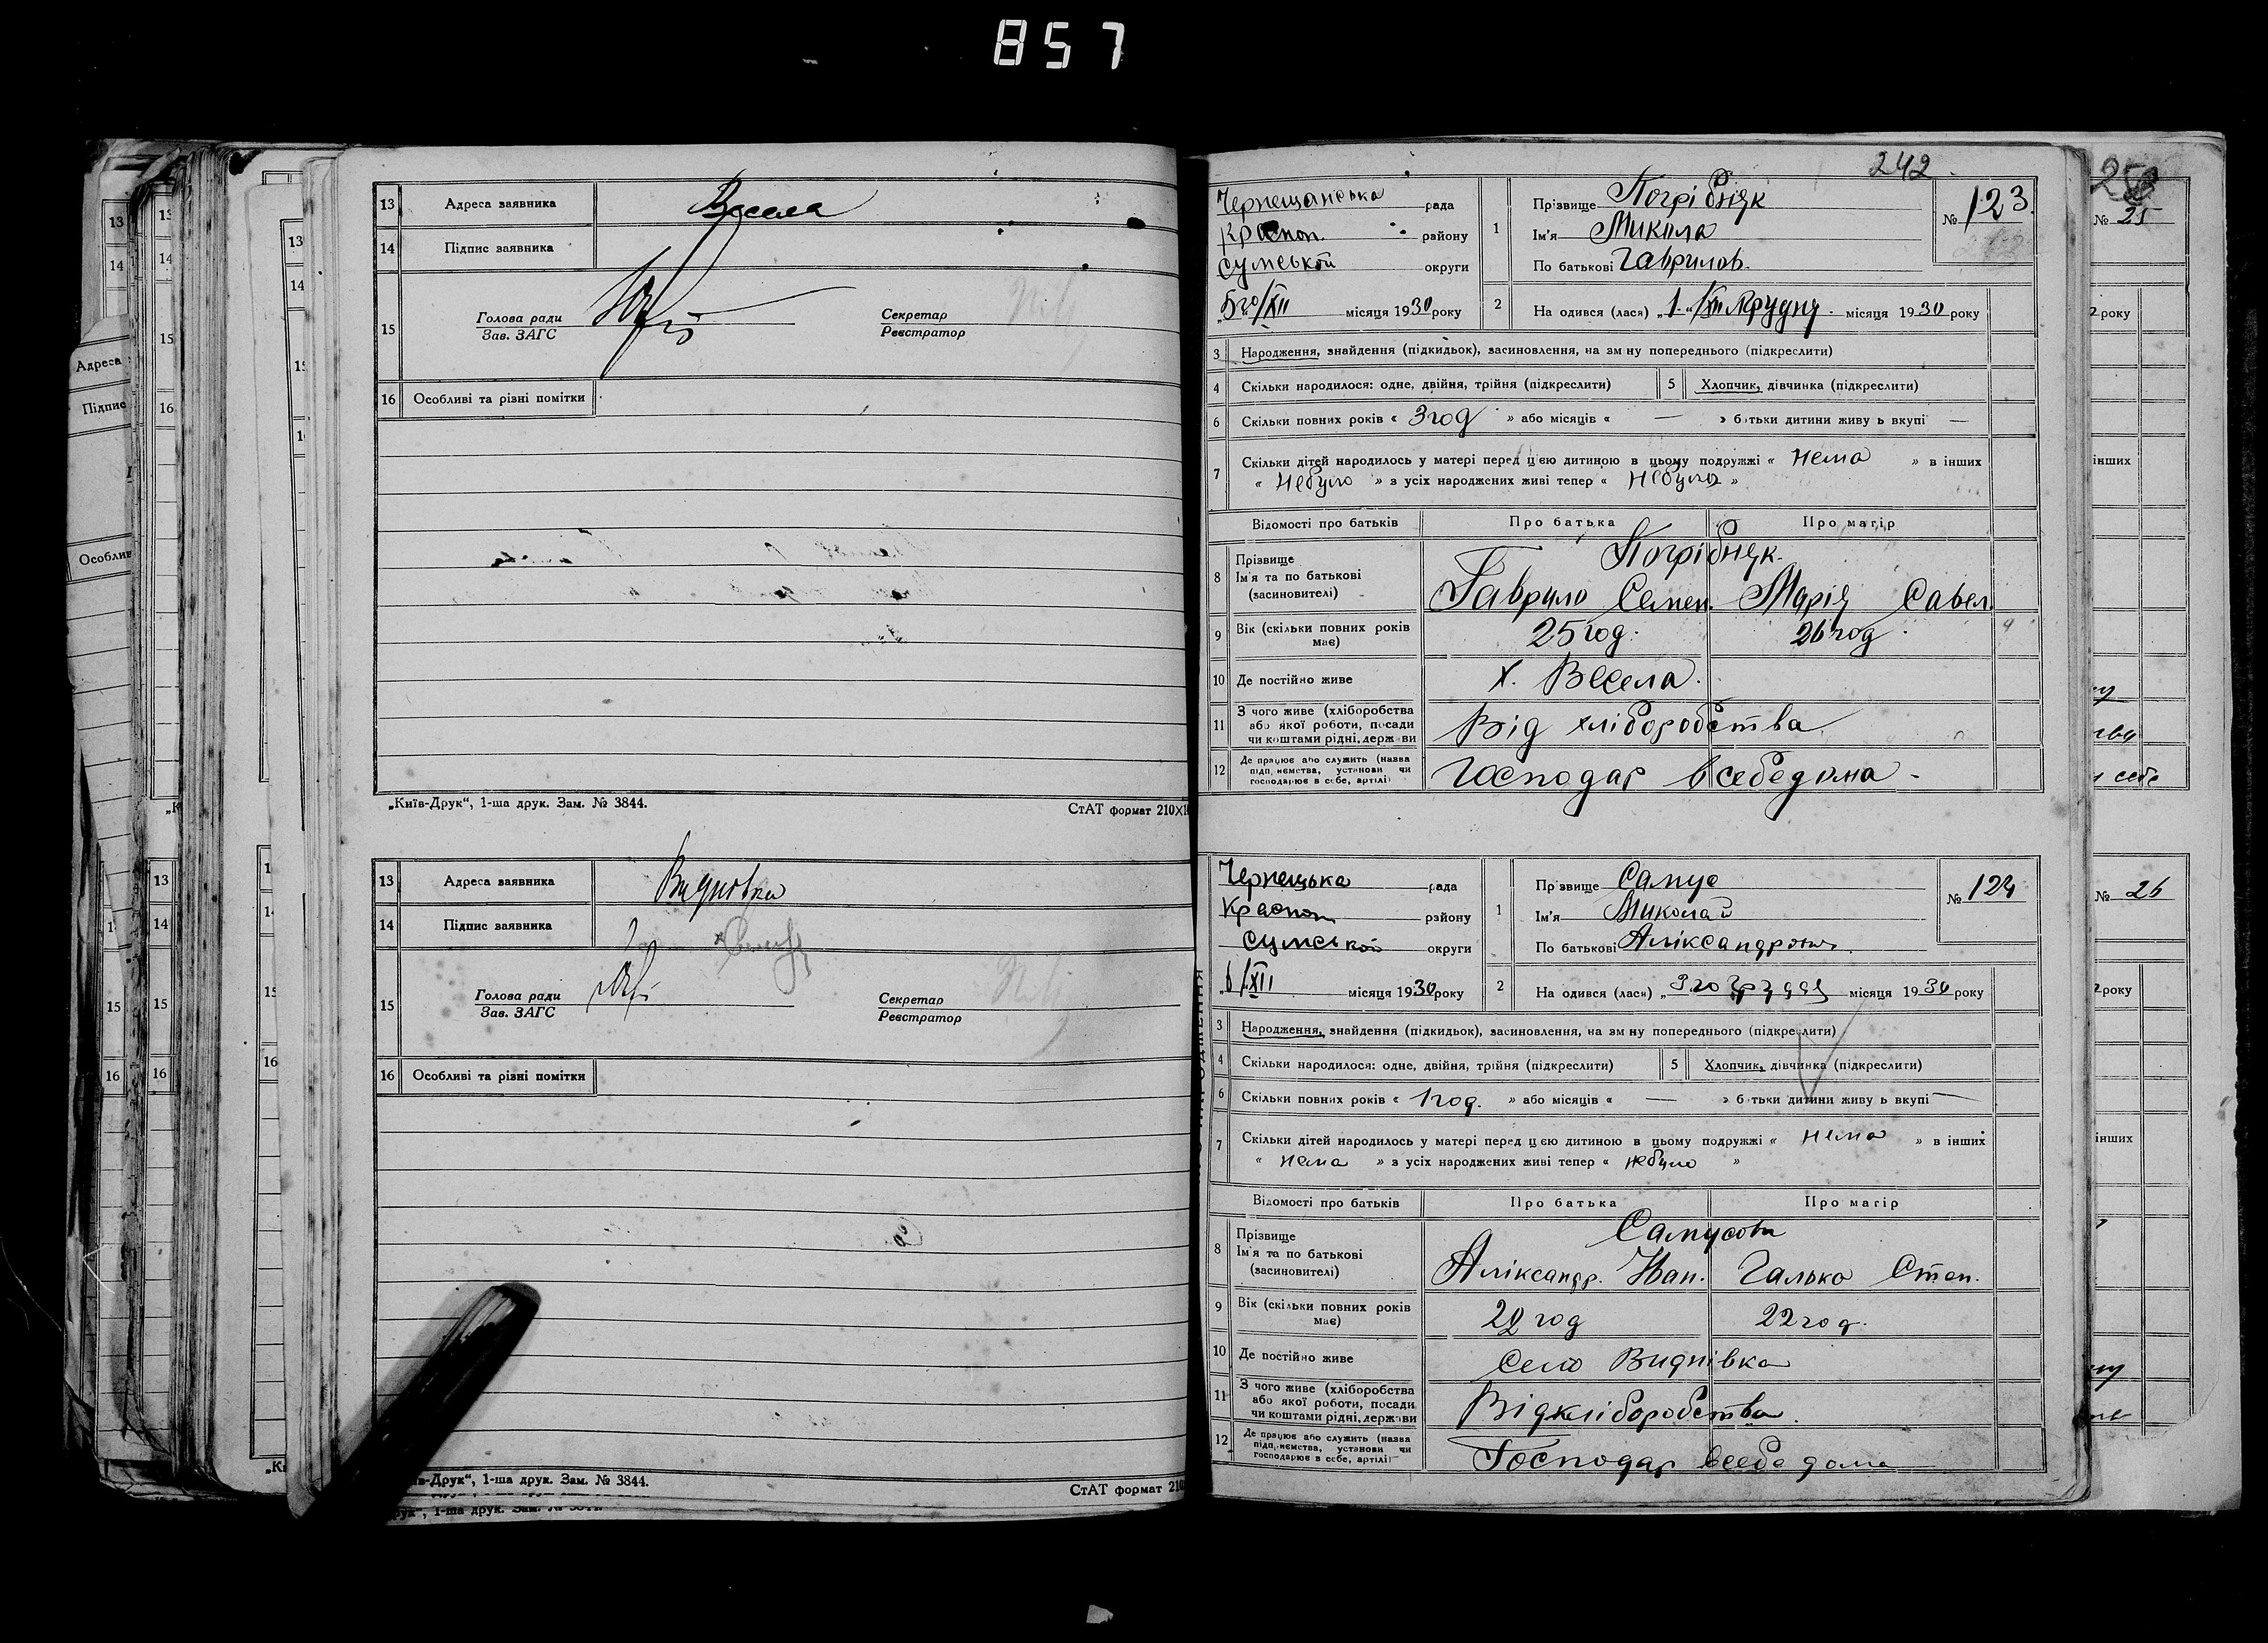 857
13 Адреса заявника Весела
14 Підпис заявника
15 Голова ради
Зав. ЗАГС
Секретар
Реєстратор
16 Особливі та різні помітки
„Київ-Друк“, 1-ша друк. Зам. № 3844.
СтАТ формат 210
13 Адреса заявника Видновка
14 Підпис заявника
15 Голова ради
Зав. ЗАГС
Секретар
Реєстратор
16 Особливі та різні помітки
в-Друк“, 1-ша друк. Зам. № 3844.
СтАТ формат 210
242
Чернещанська рада
Красноп. району
Сумської округи
5го/XII місяця 1930 року
1 Прізвище Погрібняк
Ім'я Микола
По батькові Гаврилов.
№ 123.
2 На одився (лася) „1 “/XII Грудну місяця 1930 року
3 Народження, знайдення (підкидьок), засиновлення, на зм ну попереднього (підкреслити)
4 Скільки народилося: одне, двійня, трійня (підкреслити)
5 Хлопчик, дівчинка (підкреслити)
6 Скільки повних років « 3 год » або місяців « — » б тьки дитини живу ь вкупі —
7 Скільки дітей народилось у матері перед цією дитиною в цьому подружжі « нема » в інших
« Небуло » з усіх народжених живі тепер « Небуло »
Відомості про батьків Про батька Про матір
8 Прізвище
Ім'я та по батькові
(засиновителі)
Погрібняк.
Гаврило Семен. Марія Савел.
9 Вік (скільки повних років
має)
25 год. 26 год.
10 Де постійно живе х. Весела.
11 З чого живе (хліборобства
або якої роботи, посади
чи коштами рідні, держ ви
Від хліборобства
12 Де працює або служить (назва
підп иємства, установи чи
господарює в себе, артілі)
Господар всебедома -
Чернецька рада
Красноп району
Сумської округи
6/XII місяця 1930 року
1 Пр звище Самус
Ім'я Миколай
По батькові Аліксандрович.
№ 124
2 На одився (лася) „3го Грудня місяця 1930 року
3 Народження, знайдення (підкидьок), засиновлення, на зм ну попереднього (підкреслити)
4 Скільки народилося: одне, двійня, трійня (підкреслити)
5 Хлопчик, дівчинка (підкреслити)
6 Скільки повних років « 1 год. » або місяців « — » б тьки дитини живу ь вкупі —
7 Скільки дітей народилось у матері перед цією дитиною в цьому подружжі « нема » в інших
« нема » з усіх народжених живі тепер « небуло »
Відомості про батьків Про батька Про матір
8 Прізвище
Ім'я та по батькові
(засиновителі)
Самусови
Аліксандр. Иван. Галько Степ.
9 Вік (скільки повних років
має)
год 22 год.
10 Де постійно живе село Виднівка
11 З чого живе (хліборобства
або якої роботи, посади
чи коштами рідні, держ ви
Відхліборобства.
12 Де працює або служить (назва
підп иємства, установи чи
господарює в себе, артілі)
Господар всебе дома
№ 25
року
інших
себе
№ 26
року
інших